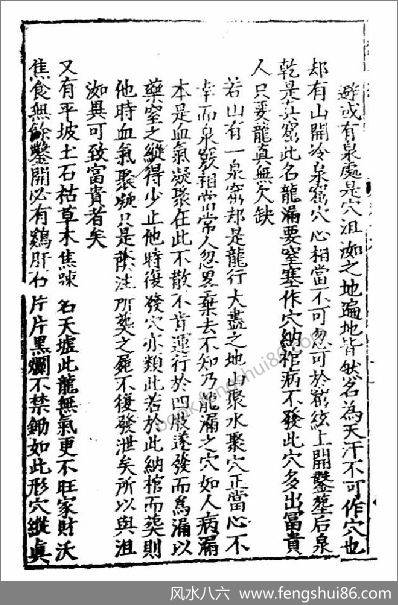 避或有泉處是穴沮洳之地遍地皆然名為天汗不可作穴也
却有山開冷泉窟穴心相當不可忽可於弦上開鑿塟后泉
乾是真窩此名龍漏要窒塞作穴納棺病不發此穴多出冨貴
人只要龍真無欠缺
若山有一泉窟却是龍行大盡之地山聚水聚穴正當心不
幸而泉發相當常人忽畧棄去不知乃龍漏之穴如人病漏
本是血氣凝聚在此不散不肯運行於四肢遂發而為漏以
藥窒之縱得少止他時復發穴亦類此若於此納棺而葬則
他時血氣聚凝只是蔭注所葬之屍不復發泄矣所以與沮
洳異可致富貴者矣
又有平坡土石枯草木焦諫名天墟此龍無氣更不旺家財沃
焦食無餘鑿開必有鷄肝石片片黑爛不禁鋤如此形穴縱真
风水八六 - www.fengshui86.com